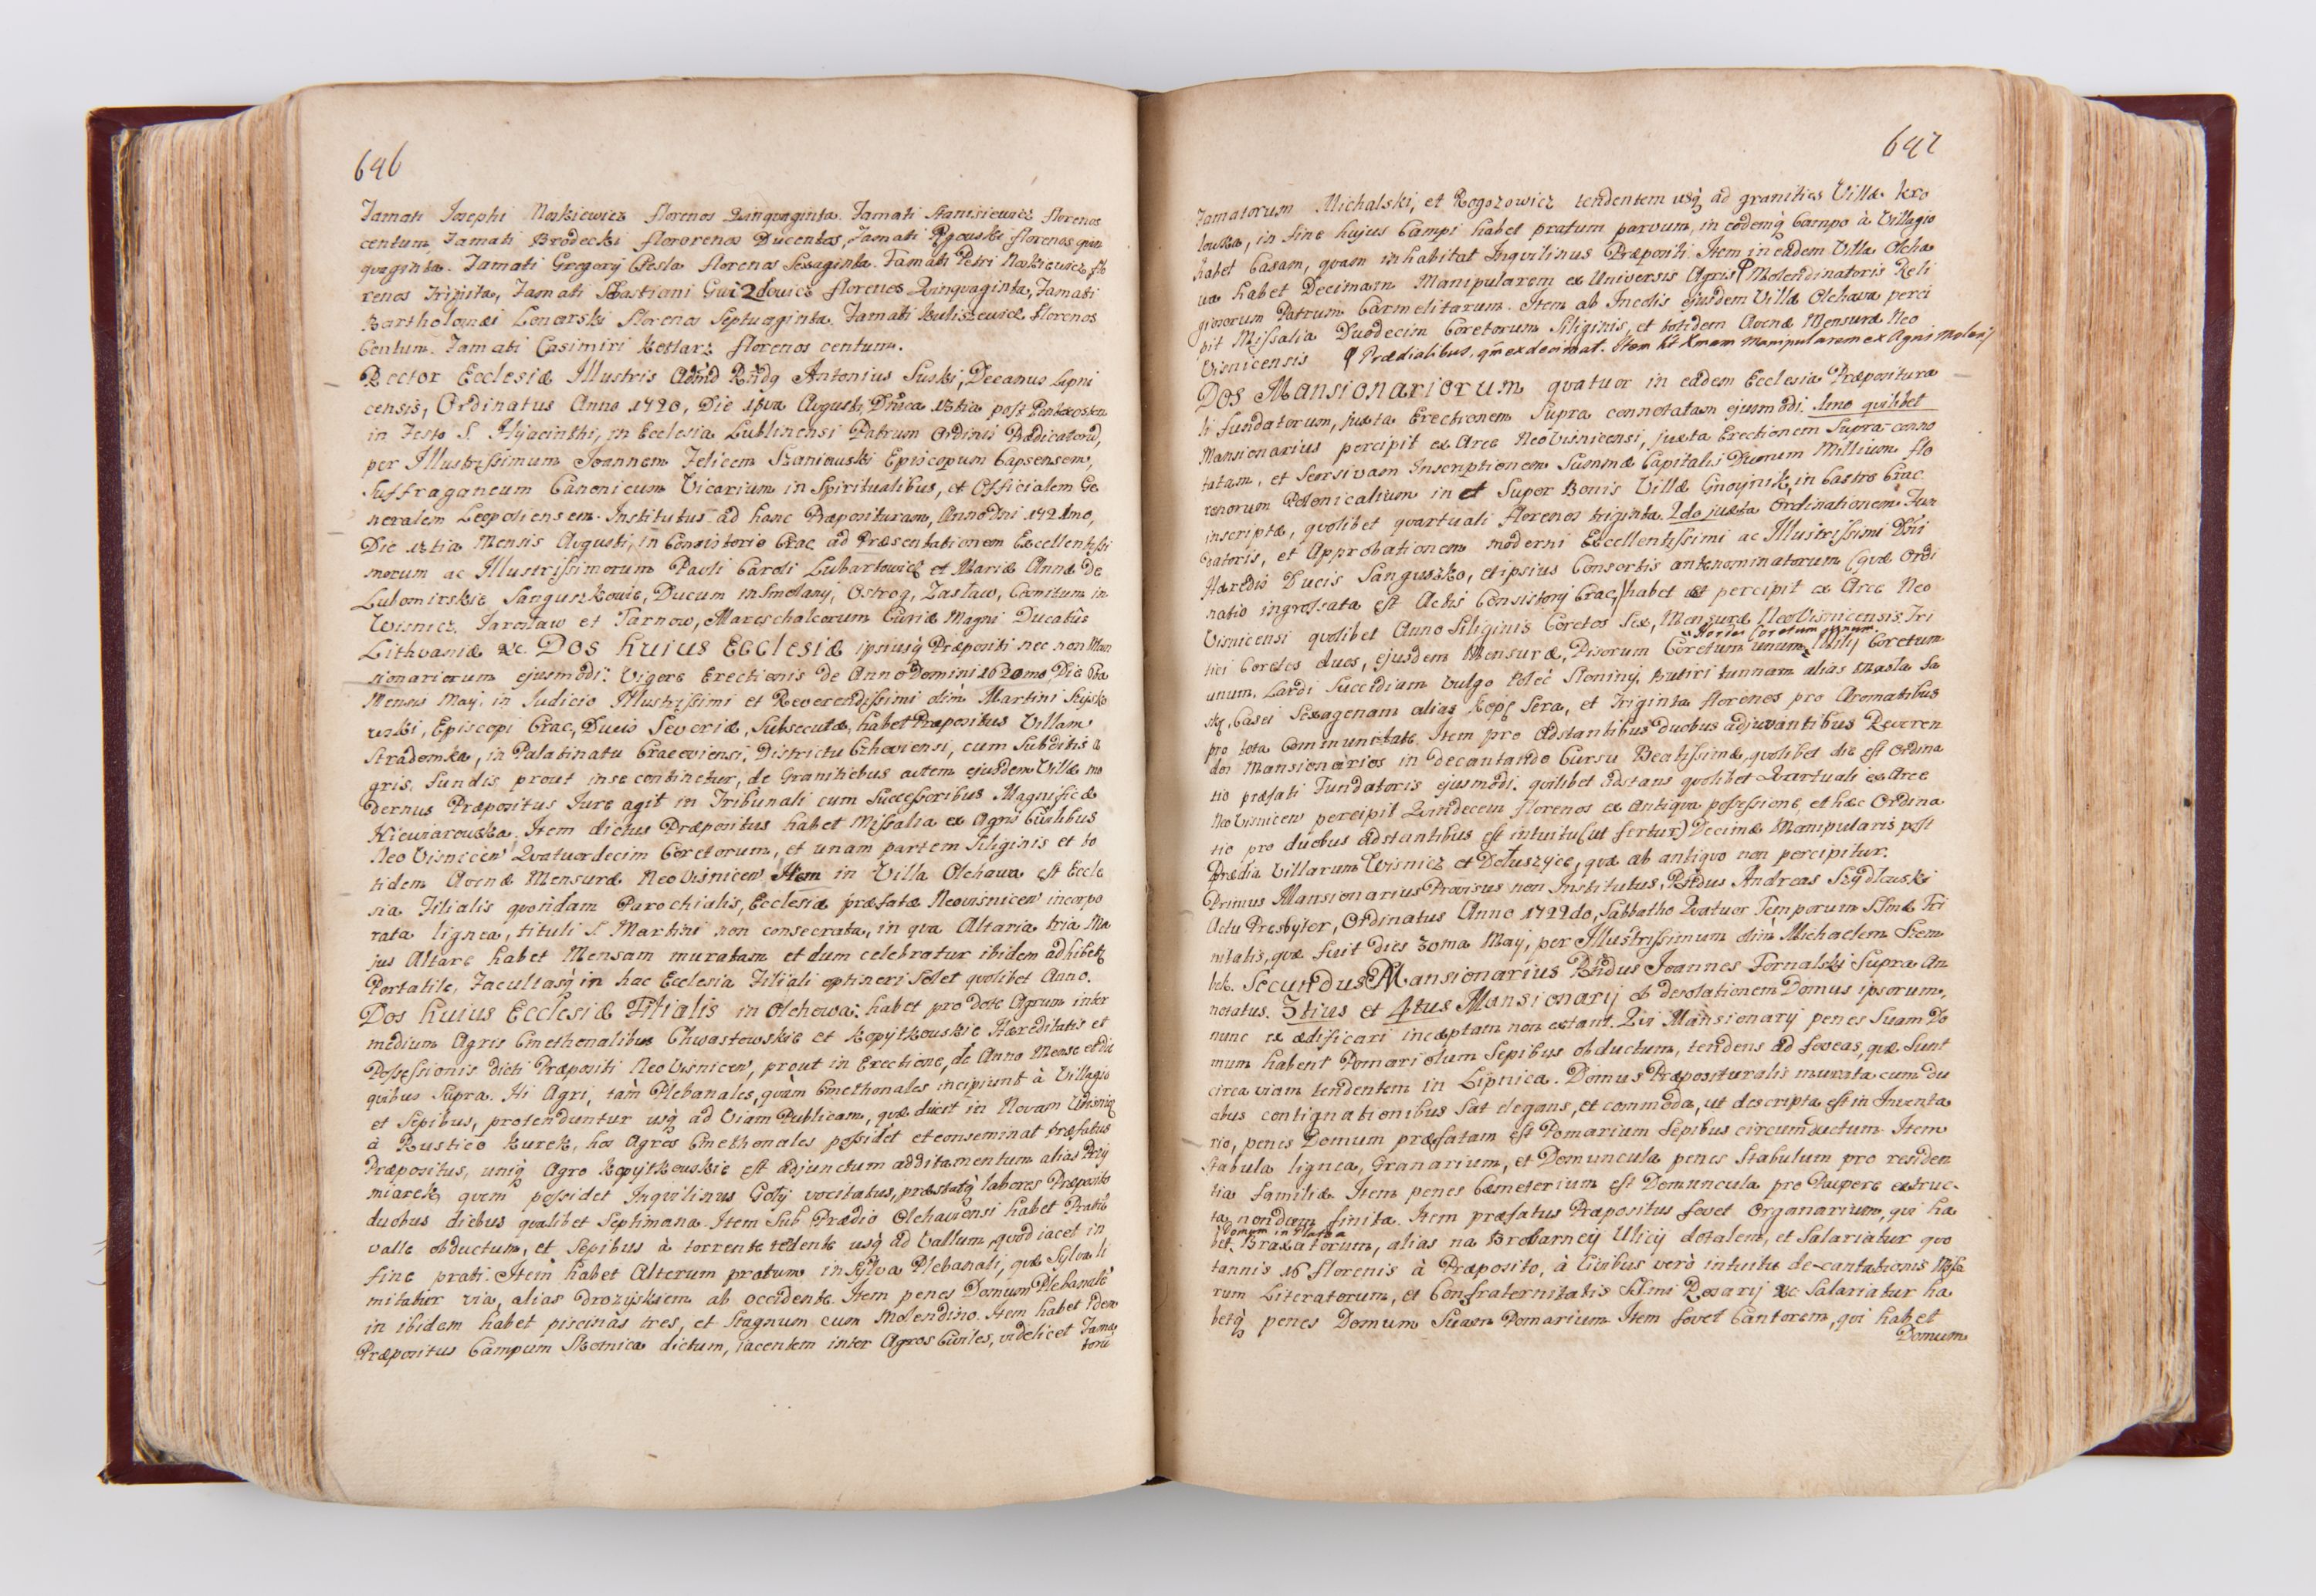 646
Famati Josephi Noskiewicz florenos Qvinqvaginta. Famati Stanisiewicz florenos
centum, Famati Brodecki flororenos Ducentos, Famati Rgowski florenos qvin
qvaginta. Famati Gregorij Cresla florenos Sexaginta. Famati Petri Noskiewicz flo
renos triginta, Famati Sbastiani Gwizdowicz florenos Qvinqvaginta, Famati
Bartholomæi Lonarski florenos Septuaginta. Famati Kuliszewicz florenos
Centum. Famati Casimiri Kotlarz florenos centum.
Rector Ecclesiæ Illustris Admd Rndq Antonius Suski, Decanus Lipni
censis, Ordinatus Anno 1720, Die 18va Avgusti, Dnica 13tia post Pentecosten
in Festo S. Hyacinthi, in Ecclesia Lublinensi Patrum Ordinis Prædicatorũ,
per Illustrissimum Joannem Felicem Szaniawski Episcopum Capsensem,
Suffraganeum Canonicum Vicarium in Spiritualibus, et Officialem Ge
neralem Leopoliensem. Institutus ad hanc Præposituram, Anno Dni 1721mo,
Die 13tia Mensis Avgusti, in Consistorio Crac. ad Præsentationem Excellentissi
morum ac Illustrissimorum Pauli Caroli Lubartowicz et Mariæ Annæ De
Lubomirskie Sanguszkowie, Ducum in Smolany, Ostrog, Zasław, Comitum in
Wisnicz, Jarosław et Tarnow, Mareschalcorum Curiæ Magni Ducatûs
Lithvaniæ &c. Dos huius Ecclesiæ ipsiusq Præpositi nec non Man
sionariorum ejusmodi: Vigore Erectionis de Anno Domini 1620mo Die 8va
Mensis Maij, in Judicio Illustrissimi et Reverendissimi olim Martini Szysko
wski, Episcopi Crac, Ducis Severiæ, Subsecutæ, habet Præpositus Villam
Stradomka, in Palatinatu Cracoviensi, Districtu Czhoviensi, cum Subditis a
gris, fundis, prout in se continetur, de Granitiebus autem ejusdem Villæ mo
dernus Præpositus Jure agit in Tribunali cum Successoribus Magnificæ
Niewiarowska. Item dictus Præpositus habet Missalia ex Agris Civilibus
Neo Visnicen Qvatuordecim Coretorum, et unam partem Siliginis et to
tidem Avenæ Mensuræ Neo Visnicen. Item in Villa Olchawa est Eccle
sia Filialis qvondam Parochialis, Ecclesiæ præfatæ Neovisnicen incorpo
rata lignea, tituli S. Martini non consecrata, in qva Altaria tria Ma
jus Altare habet Mensam muratam et dum celebratur ibidem adhibetz
Portatile, Facultasq in hac Ecclesia Filiali optineri Solet qvolibet Anno.
Dos huius Ecclesiæ Filialis in Olchowa: habet pro dote Agrum inter
medium Agris Cmethonalibus Chwastowskie et Kopytkowskie Hæreditatis et
Possessionis dicti Præpositi Neo Visnicen, prout in Erectione, de Anno Mense et die
qvibus Supra. Hi Agri, tàm Plebanales, qvàm Cmethonales incipiunt à Villagio
et Sepibus, protenduntur usq ad Viam Publicam, qvæ ducit in Novam Wisnicz
à Rustico Kurek, hos Agros Cmethonales possidet et conseminat præfatus
Præpositus, uniq Agro Kopytkowskie est adjunctum additamentum alias Przy
miarek, qvem possidet Inqvilinus Goły vocitatus, præstatq labores Præposito
duobus diebus qvalibet Septimana. Item Sub Prædio Olchaviensi habet Pratũ
valle obductum, et Sepibus à torrente tedente usq ad Vallum, qvod iacet in
fine prati. Item habet Alterum pratum in Sylva Plebanali, qvæ Sylva li
mitatur via, alias drozyskiem ab occidente. Item penes Domum Plebanalẽ
in ibidem habet piscinas tres, et Stagnum cum Molendino. Item habet idem
Præpositus Campum Skotnica dictum, iacentem inter Agros Civiles, videlicet Fama
torũ
647
Famatorum Michalski, et Rogozowicz tendentem usq ad granities Villæ Kro
lowka, in fine hujus Campi habet pratum parvum, in eodemq Campo à Villagio
habet Casam, qvam inhabitat Inqvilinus Præpositi. Item in eadem Villa Olcha
wa habet Decimam Manipularem ex Universis Agris Molendinatoris Reli
giosorum Patrum Carmelitarum. Item ab Incolis ejusdem Villæ Olchawa perci
pit Missalia Duodecim Coretorum Siliginis, et totidem Avenæ Mensuræ Neo
Visnicensis Prædialibus, qm exdecimat. Item ht Xmam Manipularem ex Agris Molarij
Dos Mansionariorum qvatuor in eadem Ecclesia Præpositura
li fundatorum, juxta Erectionem Supra connotatam ejusmodi. 1mo qvilibet
Mansionarius percipit ex Arce Neo Visnicensi, juxta Erectionem Supra-conno
tatam, et Seorsivam Inscriptionem Summæ Capitalis Duorum Millium flo
renorum Polonicalium in et Super Bonis Villæ Gnoynik, in Castro Crac
inscriptæ, qvolibet qvartuali florenos triginta. 2do juxta Ordinationem Fun
datoris, et Approbationem moderni Excellentissimi ac Illustrissimi Dni
Hæredis Ducis Sanguszko, et ipsius Consortis antenominatorum (qvæ Ordi
natio ingrossata est Actis Consistorij Crac,) habet et percipit ex Arce Neo
Visnicensi qvolibet Anno Siliginis Coretos Sex, Mensuræ Neo Visnicensis, Tri
tici Coretos duos, ejusdem Mensuræ, Pisorum Coretum unum, Hordei Coretum unum, Milij Coretum
unum. Lardi Succidiam vulgo Połeć Słoniny, Butiri tunnam alias Masła fa
skę, Casei Sexagenam alias Kopę Sera, et Triginta florenos pro Aromatibus
pro tota Communitate. Item pro Adstantibus duobus adjuvantibus Reveren
dos Mansionarios in decantando Cursu Beatissimæ, qvolibet die est Ordina
tio præfati Fundatoris ejusmodi. qvilibet adstans qvolibet Qvartuali ex Arce
Neo Visnicen percipit Qvindecem florenos ex antiqva possessione, et hæc Ordina
tio pro duobus adstantibus est intuitu (ut fertur) Decimæ Manipularis post
Prædia Villarum Wisnicz et Dełuszyce, qvæ ab antiqvo non percipitur.
Primus Mansionarius Provisus non Institutus, Rndus Andreas Szydlowski
Actu Presbyter, Ordinatus Anno 1722do, Sabbatho Qvatuor Temporum SSmæ Tri
nitatis, qvæ fuit dies 30ma Maij, per Illustrissimum olim Michaelem Szem
bek. Secundus Mansionarius Rndus Joannes Tornalski Supra An
notatus. 3tius et 4tus Mansionarij ob desolationem Domus ipsorum,
nunc ex ædificari incæptam non extant. Qvi Mansionarij penes Suam Do
mum habent Pomariolum Sepibus obductum, tendens ad foveas, qvæ Sunt
circa viam tendentem in Lipnica. Domus Præposituralis murata cum du
abus contignationibus Sat elegans, et commoda, ut descripta est in Inventa
rio, penes Domum præfatam est Pomarium Sepibus circumductum. Item
Stabula lignea, Granarium, et Domuncula penes Stabulum pro residen
tia familiæ. Item penes Cæmeterium est Domuncula pro Pauperc extruc-
ta nondum finita. Item præfatus Præpositus fovet Organarium, qvi ha
bet Domum in Platea Braxatorum, alias na Browarney Ulicy dotalem, et Salariatur qvo
tannis 16 florenis à Præposito, à Civibus verò intuitu de-cantationis Missa
rum Literatorum, et Confraternitatis SSmi Rosarij &c. Salariatur ha
betq penes Domum Suam Pomarium. Item fovet Cantorem, qvi habet
Domum